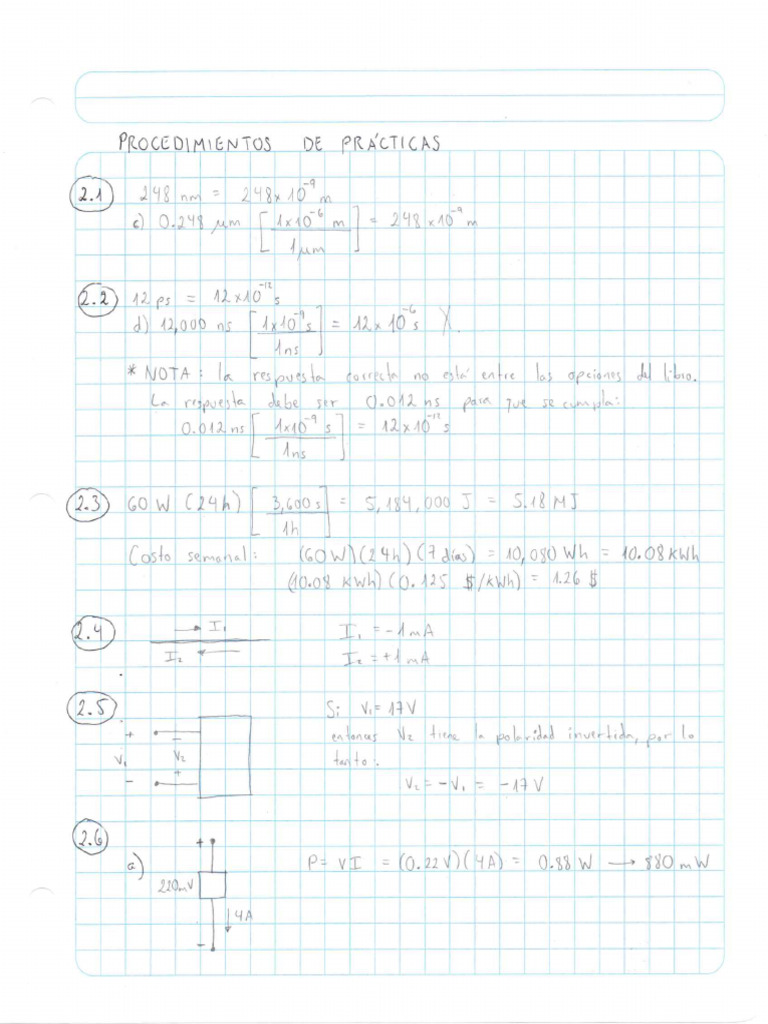 PROCEDIMIENTOS DE PRÁCTICAS
2.1 248 nm = 248×10⁻⁹ m
c) 0.248 μm [1×10⁻⁶ m / 1μm] = 248×10⁻⁹ m
2.2 12 ps = 12×10⁻¹² s
d) 12,000 ns [1×10⁻⁹ s / 1ns] = 12×10⁻⁶ s X.
* NOTA: la respuesta correcta no está entre las opciones del libro.
La respuesta debe ser 0.012 ns para que se cumpla:
0.012 ns [1×10⁻⁹ s / 1ns] = 12×10⁻¹² s
2.3 60 W (24h) [3,600 s / 1h] = 5,184,000 J = 5.18 MJ
Costo semanal: (60W)(24h)(7 días) = 10,080 Wh = 10.08 kWh
(10.08 kWh)(0.125 $/kWh) = 1.26 $
2.4 → I₁ I₁ = -1mA
I₂ ← I₂ = +1mA
2.5 Si V₁=17V
+ − entonces V₂ tiene la polaridad invertida, por lo
V₁ V₂ tanto:
− + V₂ = -V₁ = -17V
2.6
a) + P= VI = (0.22V)(4A) = 0.88 W → 880 mW
220mV
4A
−